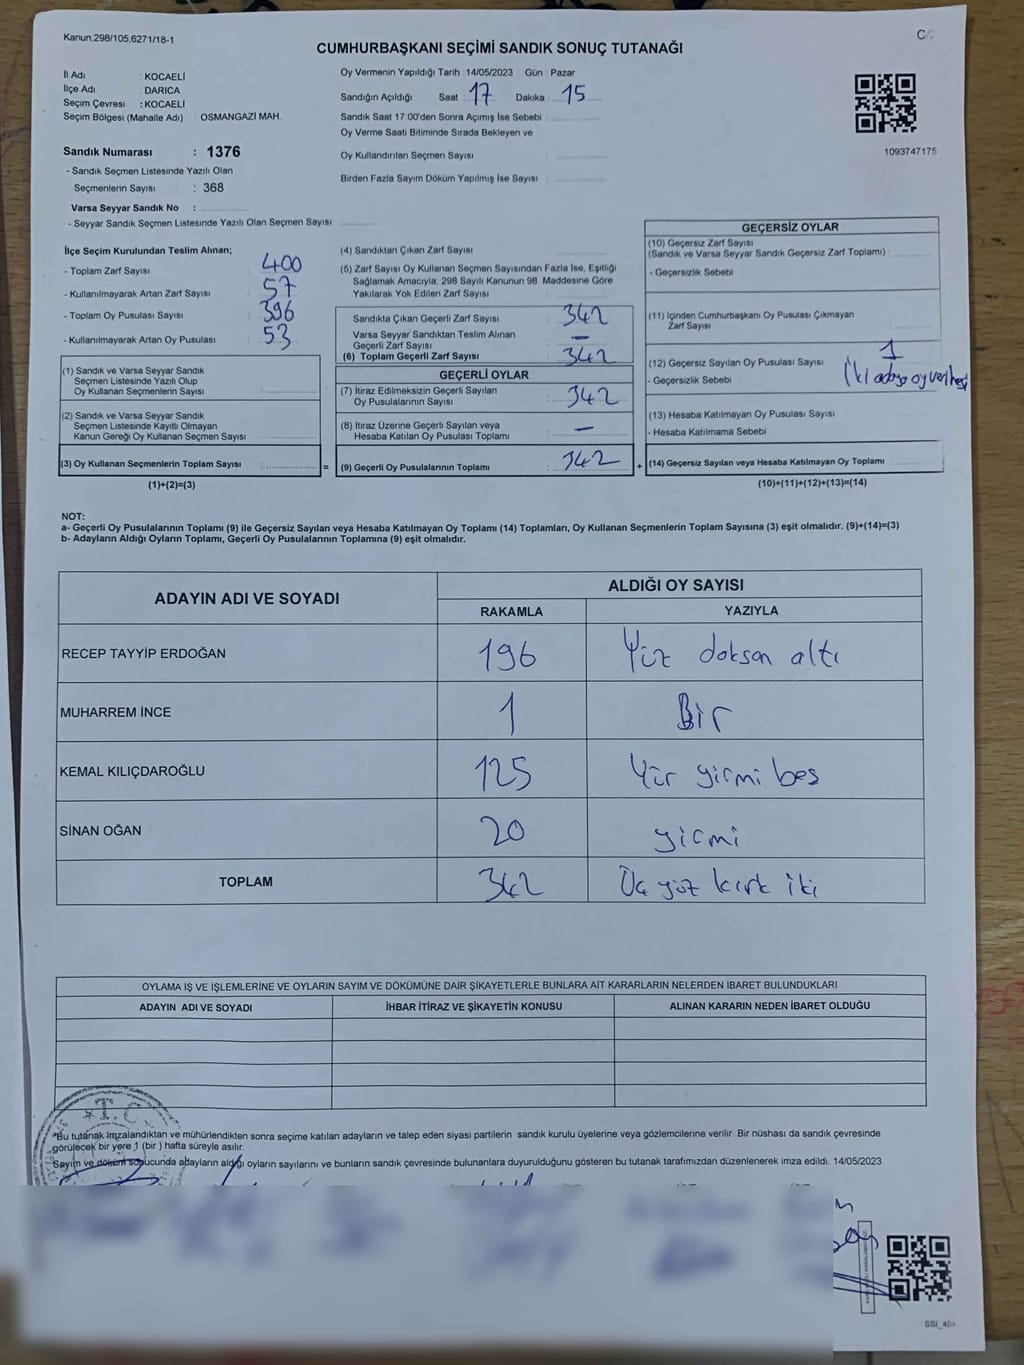 Kanun;298/105,6271/18-1
CUMHURBAŞKANI SEÇİMİ SANDIK SONUÇ TUTANAĞI
İl Adı : KOCAELİ
İlçe Adı : DARICA
Seçim Çevresi : KOCAELİ
Seçim Bölgesi (Mahalle Adı) : OSMANGAZİ MAH.
Sandık Numarası : 1376
- Sandık Seçmen Listesinde Yazılı Olan
Seçmenlerin Sayısı : 368
Varsa Seyyar Sandık No :
- Seyyar Sandık Seçmen Listesinde Yazılı Olan Seçmen Sayısı
Oy Vermenin Yapıldığı Tarih : 14/05/2023 Gün : Pazar
Sandığın Açıldığı Saat : 17 Dakika : 15
Sandık Saat 17:00'den Sonra Açımış İse Sebebi
Oy Verme Saati Bitiminde Sırada Bekleyen ve
Oy Kullandırılan Seçmen Sayısı :
Birden Fazla Sayım Döküm Yapılmış İse Sayısı :
1093747175
İlçe Seçim Kurulundan Teslim Alınan;
- Toplam Zarf Sayısı : 400
- Kullanılmayarak Artan Zarf Sayısı : 57
- Toplam Oy Pusulası Sayısı : 396
- Kullanılmayarak Artan Oy Pusulası : 53
(1) Sandık ve Varsa Seyyar Sandık
Seçmen Listesinde Yazılı Olup
Oy Kullanan Seçmenlerin Sayısı :
(2) Sandık ve Varsa Seyyar Sandık
Seçmen Listesinde Kayıtlı Olmayan
Kanun Gereği Oy Kullanan Seçmen Sayısı :
(3) Oy Kullanan Seçmenlerin Toplam Sayısı : =
(1)+(2)=(3)
(4) Sandıktan Çıkan Zarf Sayısı
(5) Zarf Sayısı Oy Kullanan Seçmen Sayısından Fazla İse, Eşitliği
Sağlamak Amacıyla, 298 Sayılı Kanunun 98. Maddesine Göre
Yakılarak Yok Edilen Zarf Sayısı
Sandıkta Çıkan Geçerli Zarf Sayısı : 342
Varsa Seyyar Sandıktan Teslim Alınan
Geçerli Zarf Sayısı : –
(6) Toplam Geçerli Zarf Sayısı : 342
GEÇERLİ OYLAR
(7) İtiraz Edilmeksizin Geçerli Sayılan
Oy Pusulalarının Sayısı : 342
(8) İtiraz Üzerine Geçerli Sayılan veya
Hesaba Katılan Oy Pusulası Toplamı : –
(9) Geçerli Oy Pusulalarının Toplamı : 342 +
GEÇERSİZ OYLAR
(10) Geçersiz Zarf Sayısı
(Sandık ve Varsa Seyyar Sandık Geçersiz Zarf Toplamı) :
- Geçersizlik Sebebi :
(11) İçinden Cumhurbaşkanı Oy Pusulası Çıkmayan
Zarf Sayısı :
(12) Geçersiz Sayılan Oy Pusulası Sayısı : 1
- Geçersizlik Sebebi : İki adaya oy verilmesi
(13) Hesaba Katılmayan Oy Pusulası Sayısı :
- Hesaba Katılmama Sebebi :
(14) Geçersiz Sayılan veya Hesaba Katılmayan Oy Toplamı :
(10)+(11)+(12)+(13)=(14)
NOT:
a- Geçerli Oy Pusulalarının Toplamı (9) ile Geçersiz Sayılan veya Hesaba Katılmayan Oy Toplamı (14) Toplamları, Oy Kullanan Seçmenlerin Toplam Sayısına (3) eşit olmalıdır. (9)+(14)=(3)
b- Adayların Aldığı Oyların Toplamı, Geçerli Oy Pusulalarının Toplamına (9) eşit olmalıdır.
ADAYIN ADI VE SOYADI
ALDIĞI OY SAYISI
RAKAMLA YAZIYLA
RECEP TAYYİP ERDOĞAN 196 Yüz doksan altı
MUHARREM İNCE 1 Bir
KEMAL KILIÇDAROĞLU 125 Yüz yirmi beş
SİNAN OĞAN 20 yirmi
TOPLAM 342 Üç yüz kırk iki
OYLAMA İŞ VE İŞLEMLERİNE VE OYLARIN SAYIM VE DÖKÜMÜNE DAİR ŞİKAYETLERLE BUNLARA AİT KARARLARIN NELERDEN İBARET BULUNDUKLARI
ADAYIN ADI VE SOYADI İHBAR İTİRAZ VE ŞİKAYETİN KONUSU ALINAN KARARIN NEDEN İBARET OLDUĞU
T.C.
*Bu tutanak imzalandıktan ve mühürlendikten sonra seçime katılan adayların ve talep eden siyasi partilerin sandık kurulu üyelerine veya gözlemcilerine verilir .Bir nüshası da sandık çevresinde
görülecek bir yere 1 (bir ) hafta süreyle asılır.
Sayım ve döküm sonucunda adayların aldığı oyların sayılarını ve bunların sandık çevresinde bulunanlara duyurulduğunu gösteren bu tutanak tarafımızdan düzenlenerek imza edildi. 14/05/2023